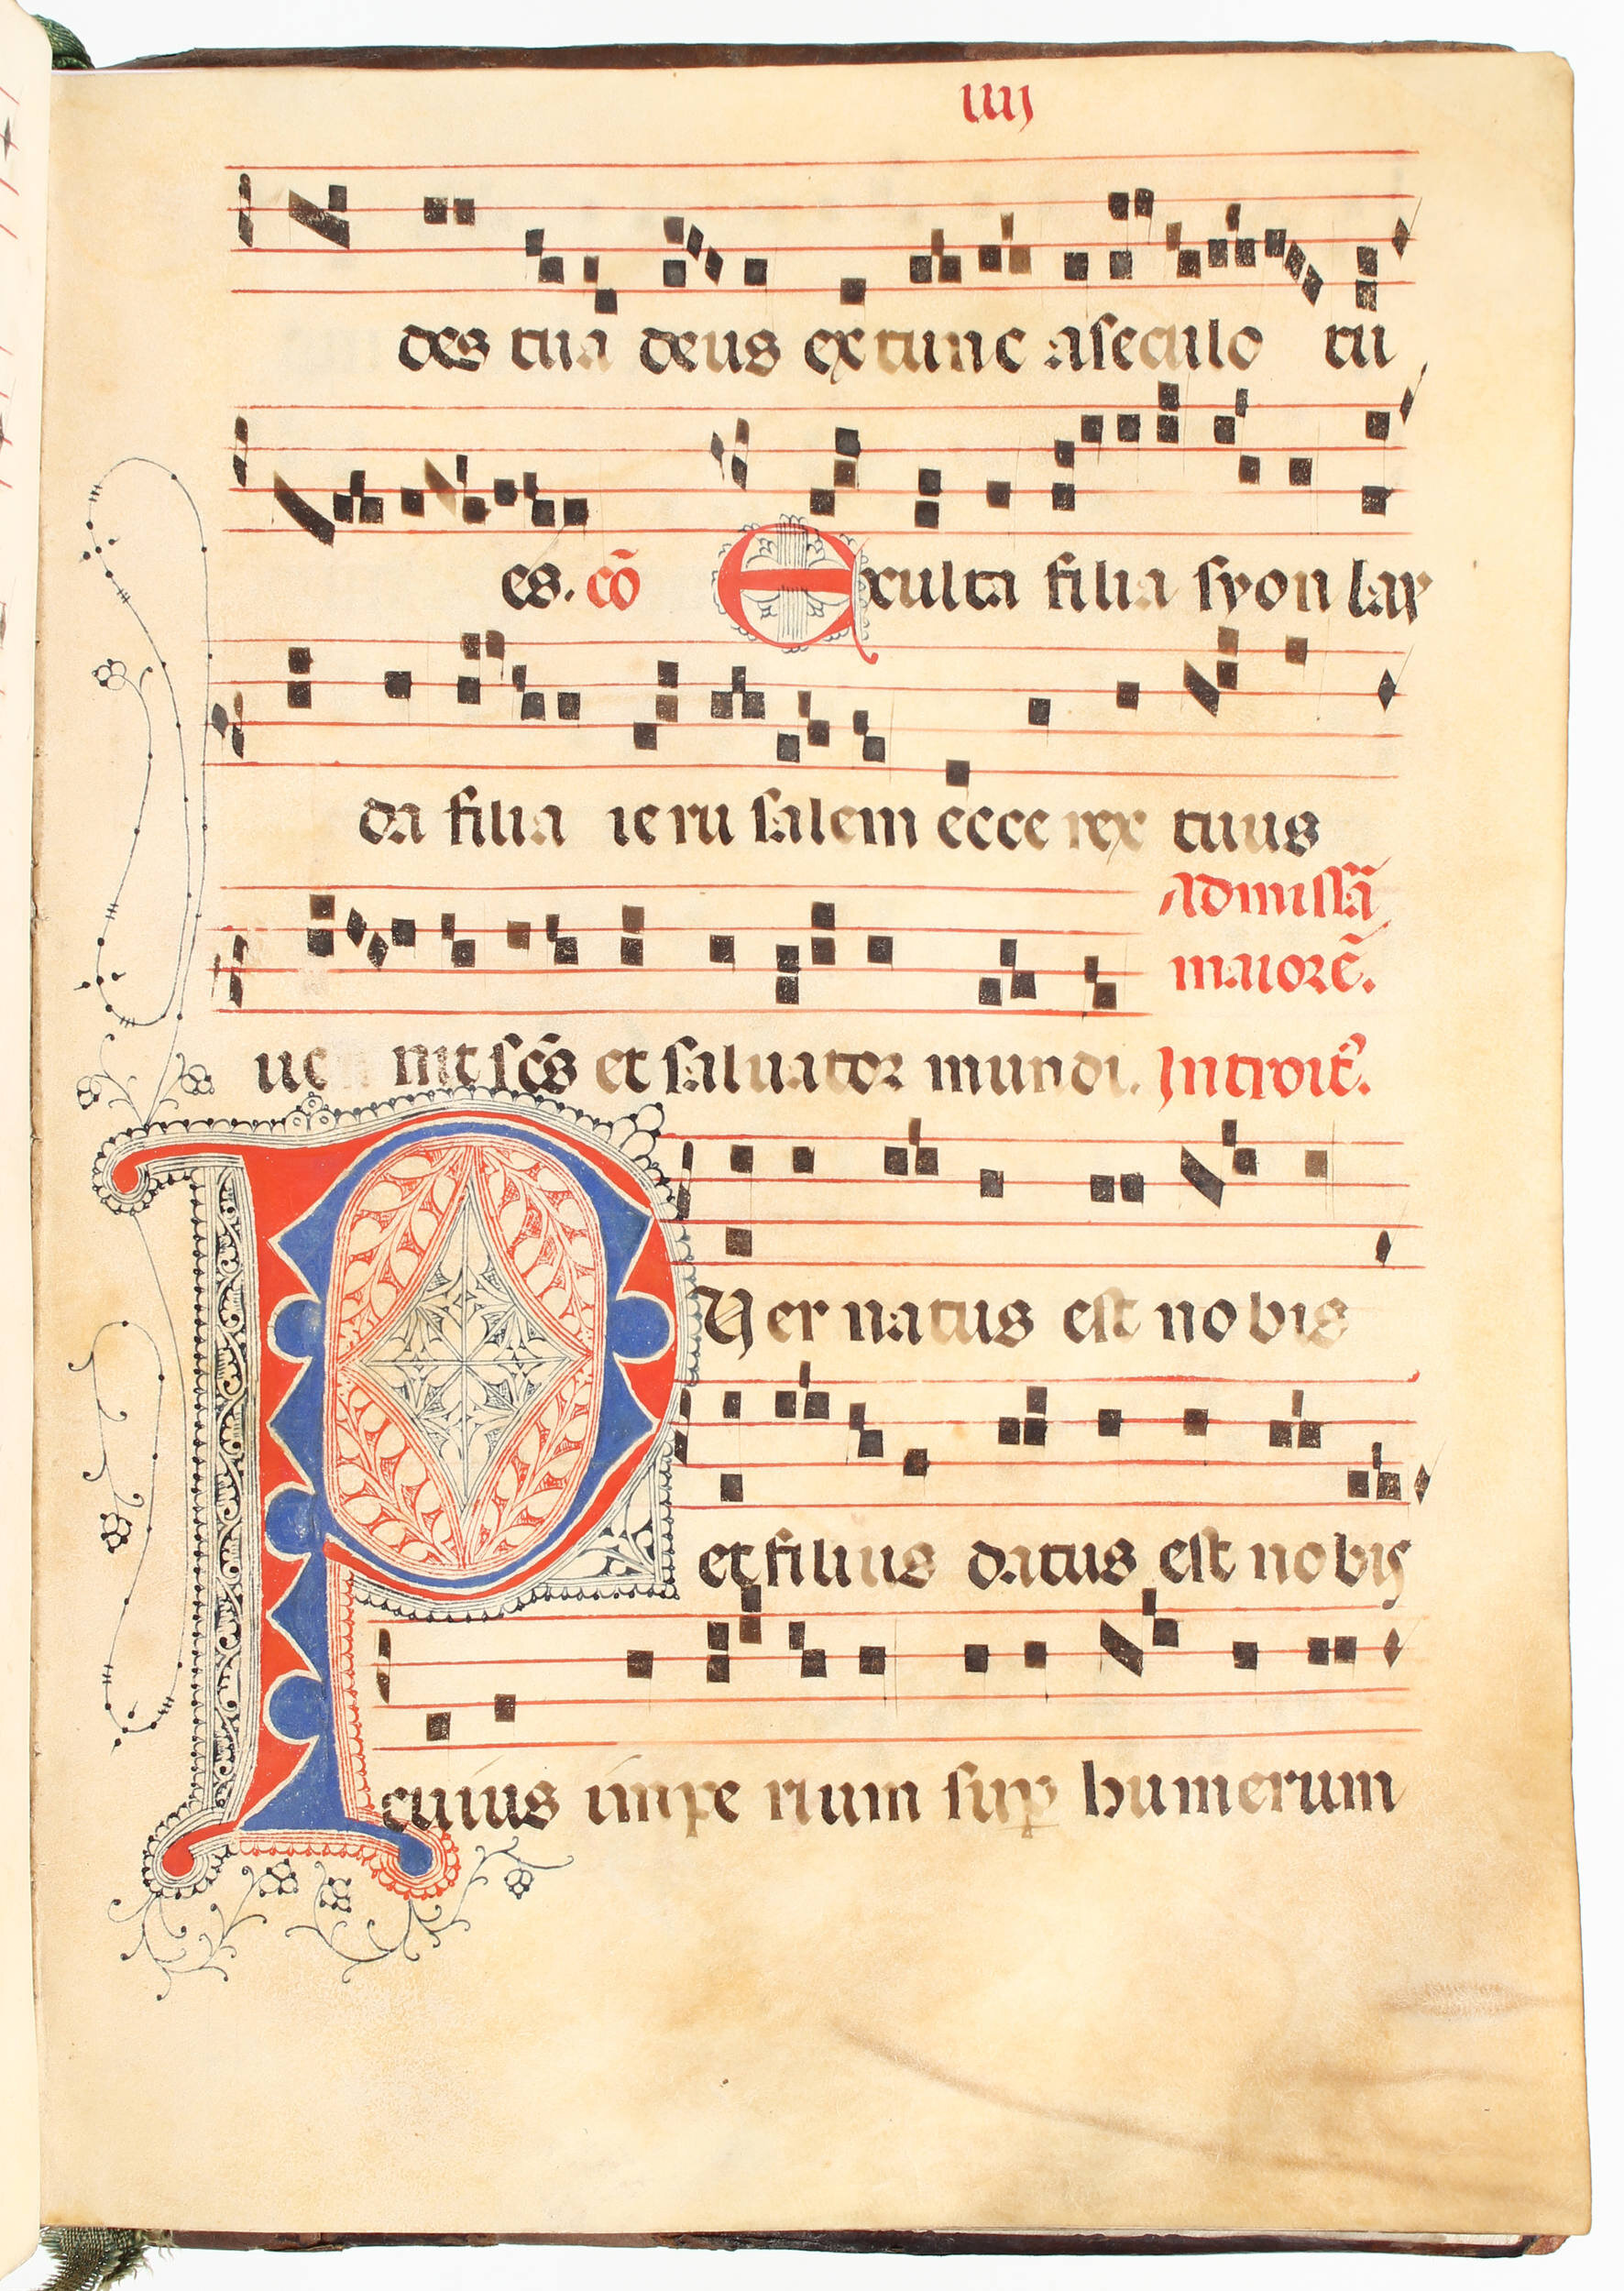 iiij
des tua deus ex tunc aseculo tu
es. cõ Exulta filia syon lau
da filia ieru salem ecce rex tuus
Admissã
maiorẽ.
ue nit scs̃ et saluator mundi. Introit̃.
PUer natus est nobis
et filius datus est nobis
cuius impe rium sup̱ humerum